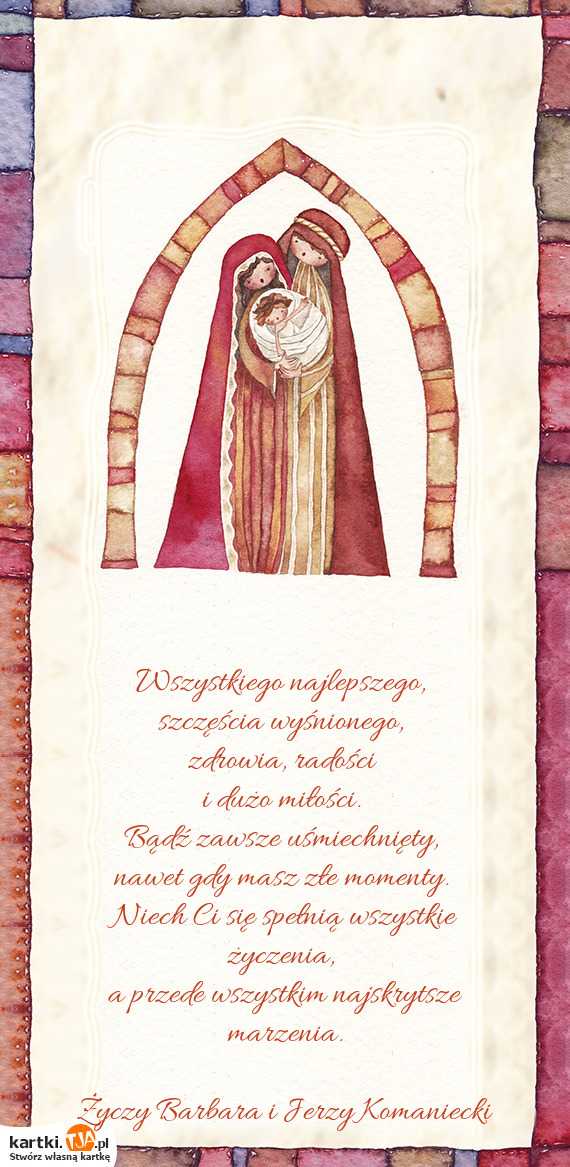 Wszystkiego najlepszego,
szczęścia wyśnionego,
zdrowia, radości
i dużo miłości.
Bądź zawsze uśmiechnięty,
nawet gdy masz złe momenty.
Niech Ci się spełnią wszystkie
życzenia,
a przede wszystkim najskrytsze
marzenia.
Życzy Barbara i Jerzy Komaniecki
kartki.TJA.pl
Stwórz własną kartkę